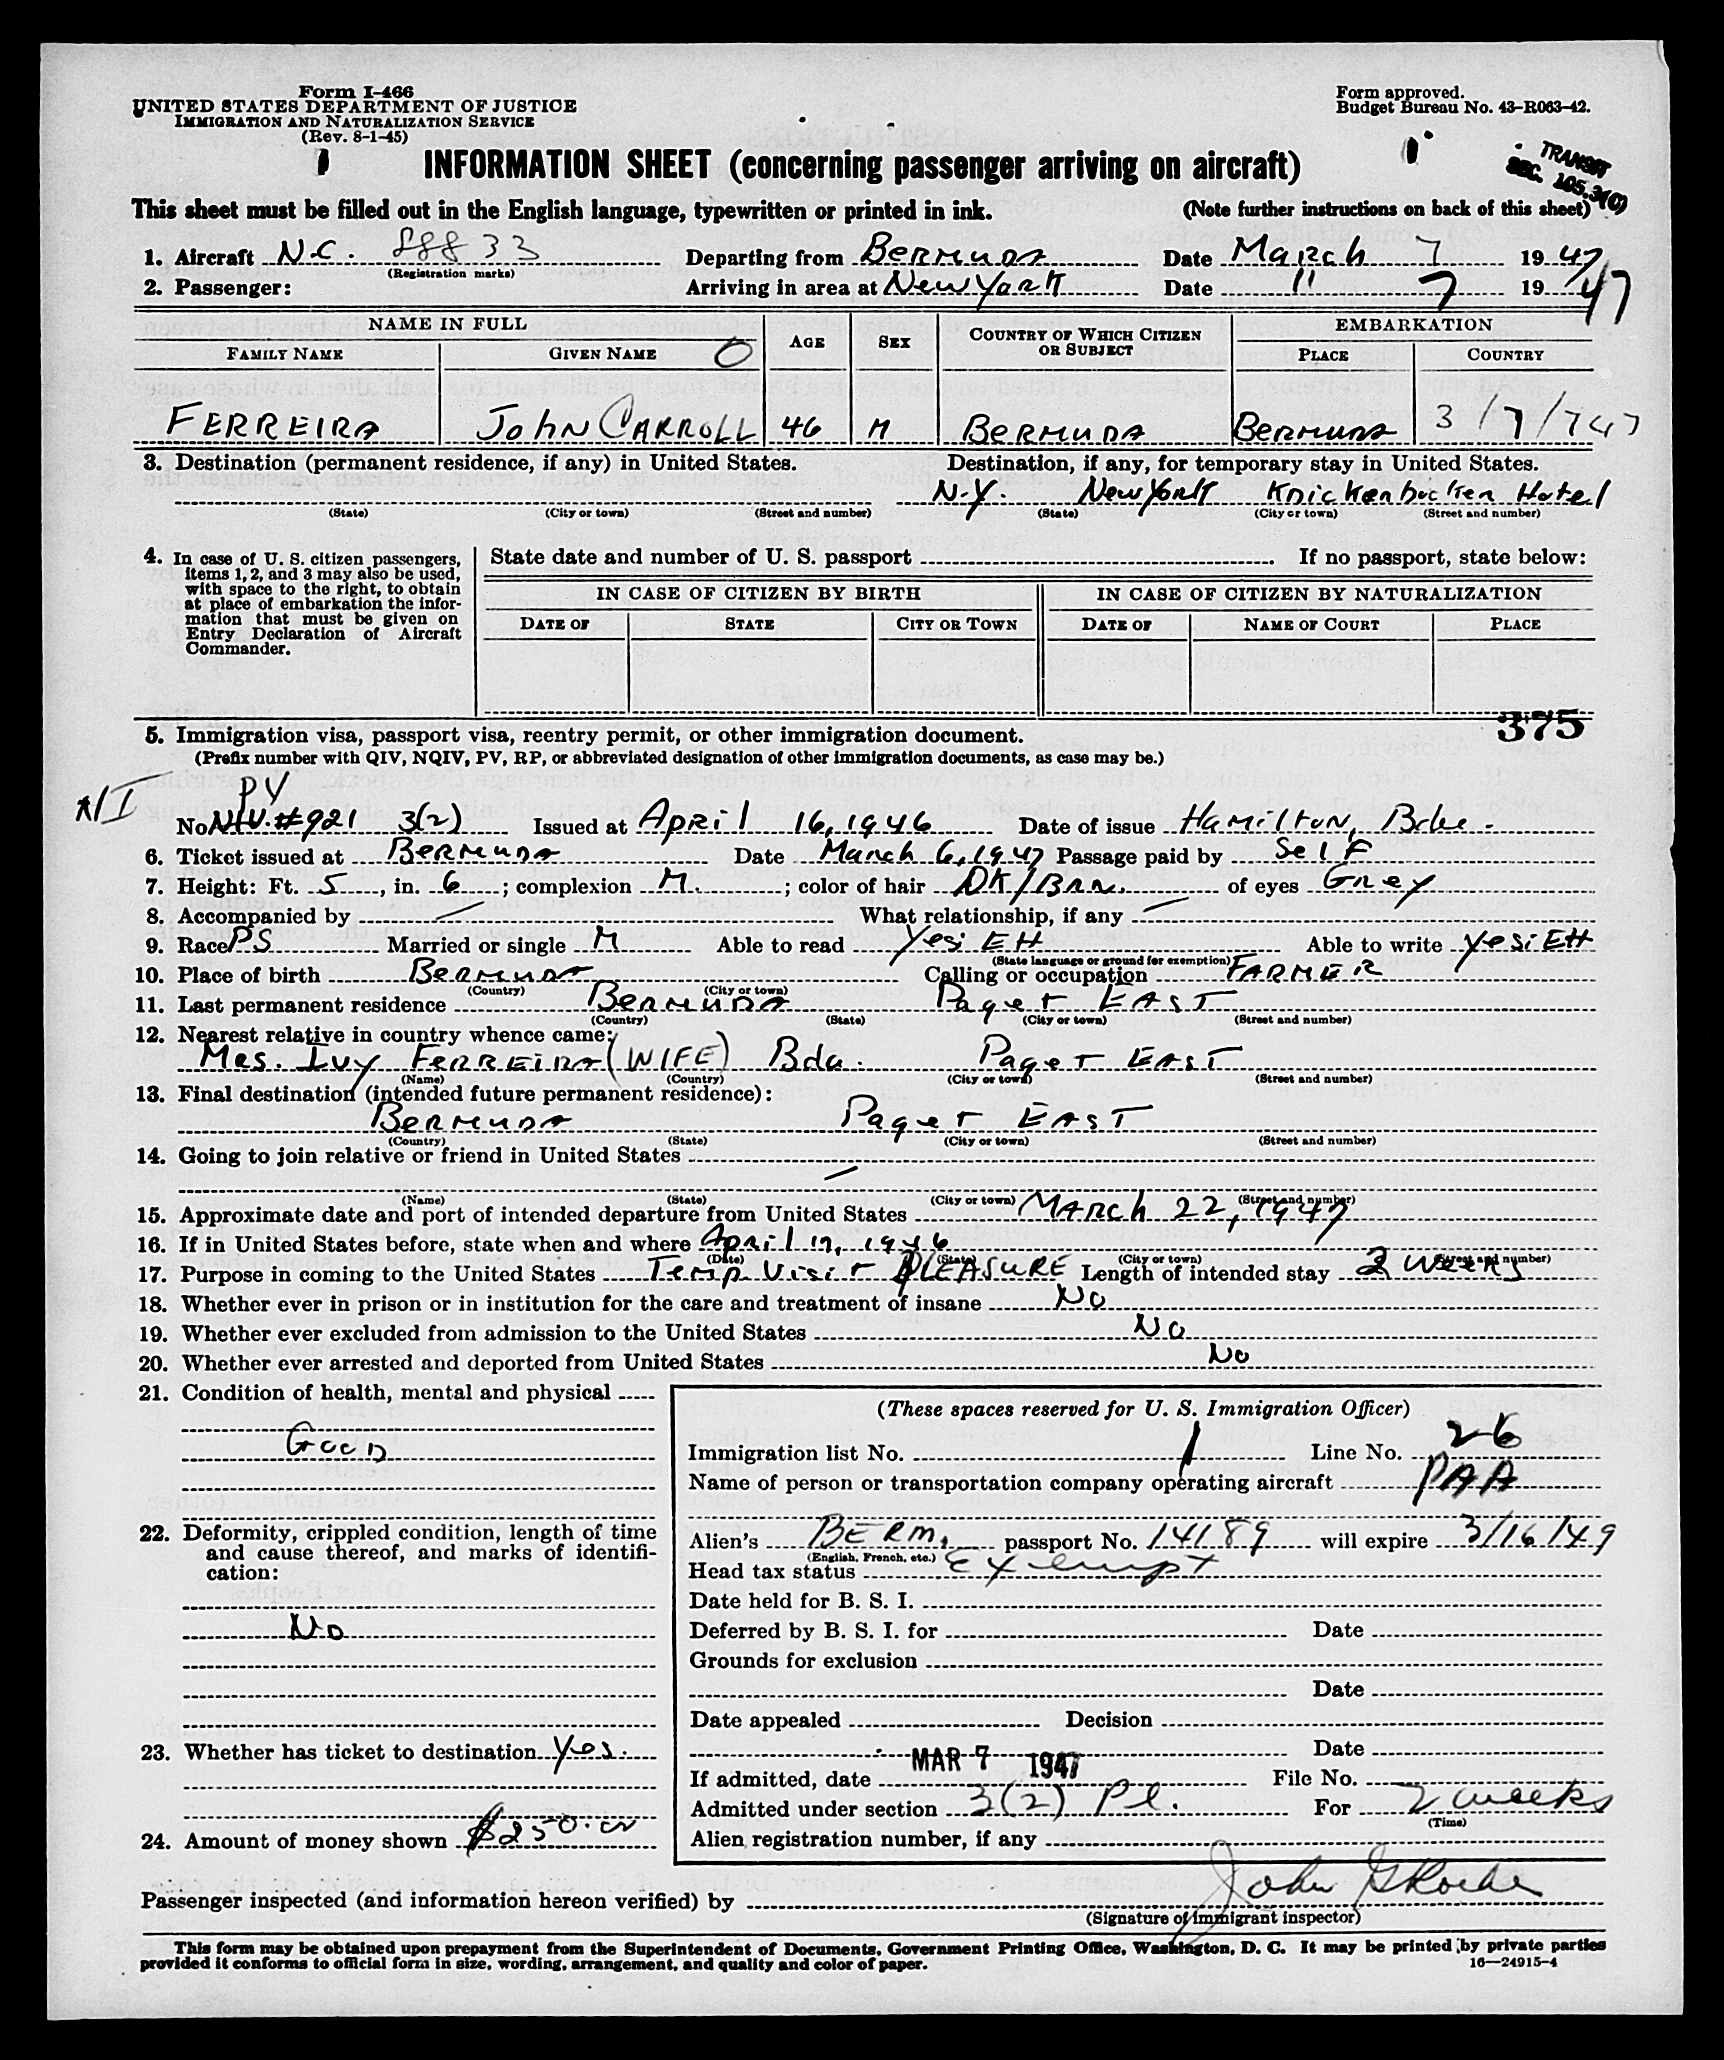 Form I-466
UNITED STATES DEPARTMENT OF JUSTICE
IMMIGRATION AND NATURALIZATION SERVICE
(Rev. 8-1-45)
Form approved.
Budget Bureau No. 43-R063-42.
INFORMATION SHEET (concerning passenger arriving on aircraft)
TRANSIT
SEC. 105.3(0)
This sheet must be filled out in the English language, typewritten or printed in ink. (Note further instructions on back of this sheet)
1. Aircraft N.C. 88833 Departing from BERMUDA Date March 7 1947
(Registration marks)
2. Passenger: Arriving in area at New York Date " 7 1947
NAME IN FULL AGE SEX COUNTRY OF WHICH CITIZEN OR SUBJECT EMBARKATION
FAMILY NAME GIVEN NAME O PLACE COUNTRY
FERREIRA JOHN CARROLL 46 M BERMUDA BERMUDA 3/7/747
3. Destination (permanent residence, if any) in United States. Destination, if any, for temporary stay in United States.
N.Y. New York Knickerbocker Hotel
(State) (City or town) (Street and number) (State) (City or town) (Street and number)
4. In case of U. S. citizen passengers, items 1, 2, and 3 may also be used, with space to the right, to obtain at place of embarkation the information that must be given on Entry Declaration of Aircraft Commander.
State date and number of U. S. passport . If no passport, state below:
IN CASE OF CITIZEN BY BIRTH IN CASE OF CITIZEN BY NATURALIZATION
DATE OF STATE CITY OR TOWN DATE OF NAME OF COURT PLACE
375
5. Immigration visa, passport visa, reentry permit, or other immigration document.
(Prefix number with QIV, NQIV, PV, RP, or abbreviated designation of other immigration documents, as case may be.)
NI PV
No. NIV. #921 3(2) Issued at April 16, 1946 Date of issue Hamilton, Bda.
6. Ticket issued at BERMUDA Date March 6, 1947 Passage paid by Self
7. Height: Ft. 5, in. 6; complexion M.; color of hair DK/BRN. of eyes Grey
8. Accompanied by — What relationship, if any —
9. Race PS Married or single M Able to read Yes: EH Able to write Yes: EH
(State language or ground for exemption)
10. Place of birth BERMUDA Calling or occupation FARMER
(Country) (City or town)
11. Last permanent residence BERMUDA Paget EAST
(Country) (State) (City or town) (Street and number)
12. Nearest relative in country whence came:
Mrs. Ivy FERREIRA (WIFE) Bda. Paget EAST
(Name) (Country) (City or town) (Street and number)
13. Final destination (intended future permanent residence):
BERMUDA Paget EAST
(Country) (State) (City or town) (Street and number)
14. Going to join relative or friend in United States
—
(Name) (State) (City or town) (Street and number)
15. Approximate date and port of intended departure from United States MARCH 22, 1947
16. If in United States before, state when and where April 17, 1946
(Date) (State) (City or town) (Street and number)
17. Purpose in coming to the United States Temp. Visit PLEASURE Length of intended stay 2 weeks
18. Whether ever in prison or in institution for the care and treatment of insane No
19. Whether ever excluded from admission to the United States No
20. Whether ever arrested and deported from United States No
21. Condition of health, mental and physical
Good
22. Deformity, crippled condition, length of time and cause thereof, and marks of identification:
No
23. Whether has ticket to destination Yes.
24. Amount of money shown $250.00
(These spaces reserved for U. S. Immigration Officer)
Immigration list No. 1 Line No. 26
Name of person or transportation company operating aircraft PAA
Alien's BERM. passport No. 14189 will expire 3/16/49
(English, French, etc.)
Head tax status Exempt
Date held for B. S. I.
Deferred by B. S. I. for Date
Grounds for exclusion
Date
Date appealed Decision
Date
If admitted, date MAR 7 1947 File No.
Admitted under section 3(2) Pl. For 2 weeks
(Time)
Alien registration number, if any
Passenger inspected (and information hereon verified) by John G Roche
(Signature of immigrant inspector)
This form may be obtained upon prepayment from the Superintendent of Documents, Government Printing Office, Washington, D. C. It may be printed by private parties
provided it conforms to official form in size, wording, arrangement, and quality and color of paper.
16—24915-4